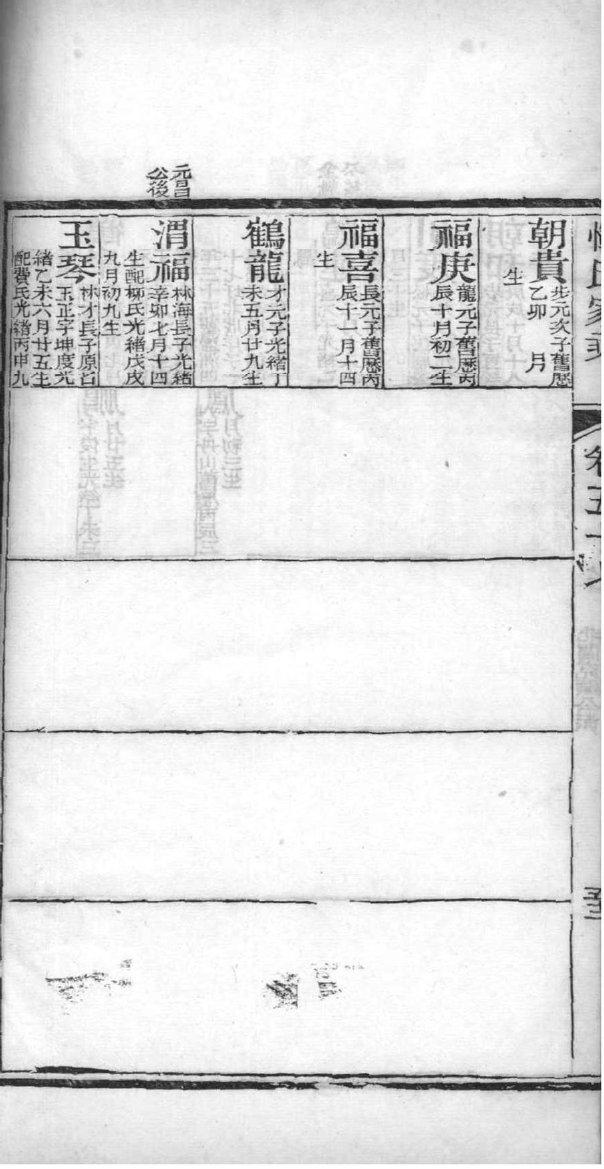 家
卷五十
朝貴
步元次子舊厯
乙卯　月
生
福庚
龍元子舊厯丙
辰十月初二生
福喜
長元子舊厯丙
辰十一月十四
生
鶴龍
才元子光緒丁
未五月廿九生
元昌
公後
渭福
林海長子光緒
辛卯七月十四
生配柳氏光緒戊戌
九月初九生
玉琴
林才長子原名
玉正字坤度光
緒乙未六月廿五生
配費氏光緒丙申九